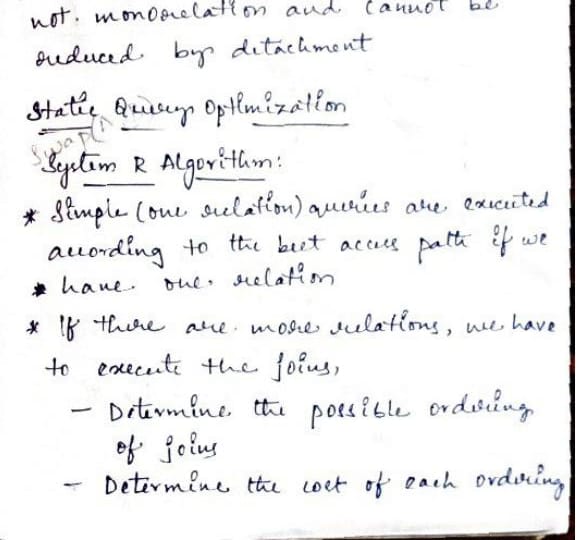 not. monorelation and cannot be
reduced by detachment
Static Query Optimization
Swap(
System R Algorithm:
* Simple (one relation) queries are executed
according to the best access path if we
* have one relation
* If there are more relations, we have
to execute the joins,
- Determine the possible ordering
of joins
- Determine the cost of each ordering